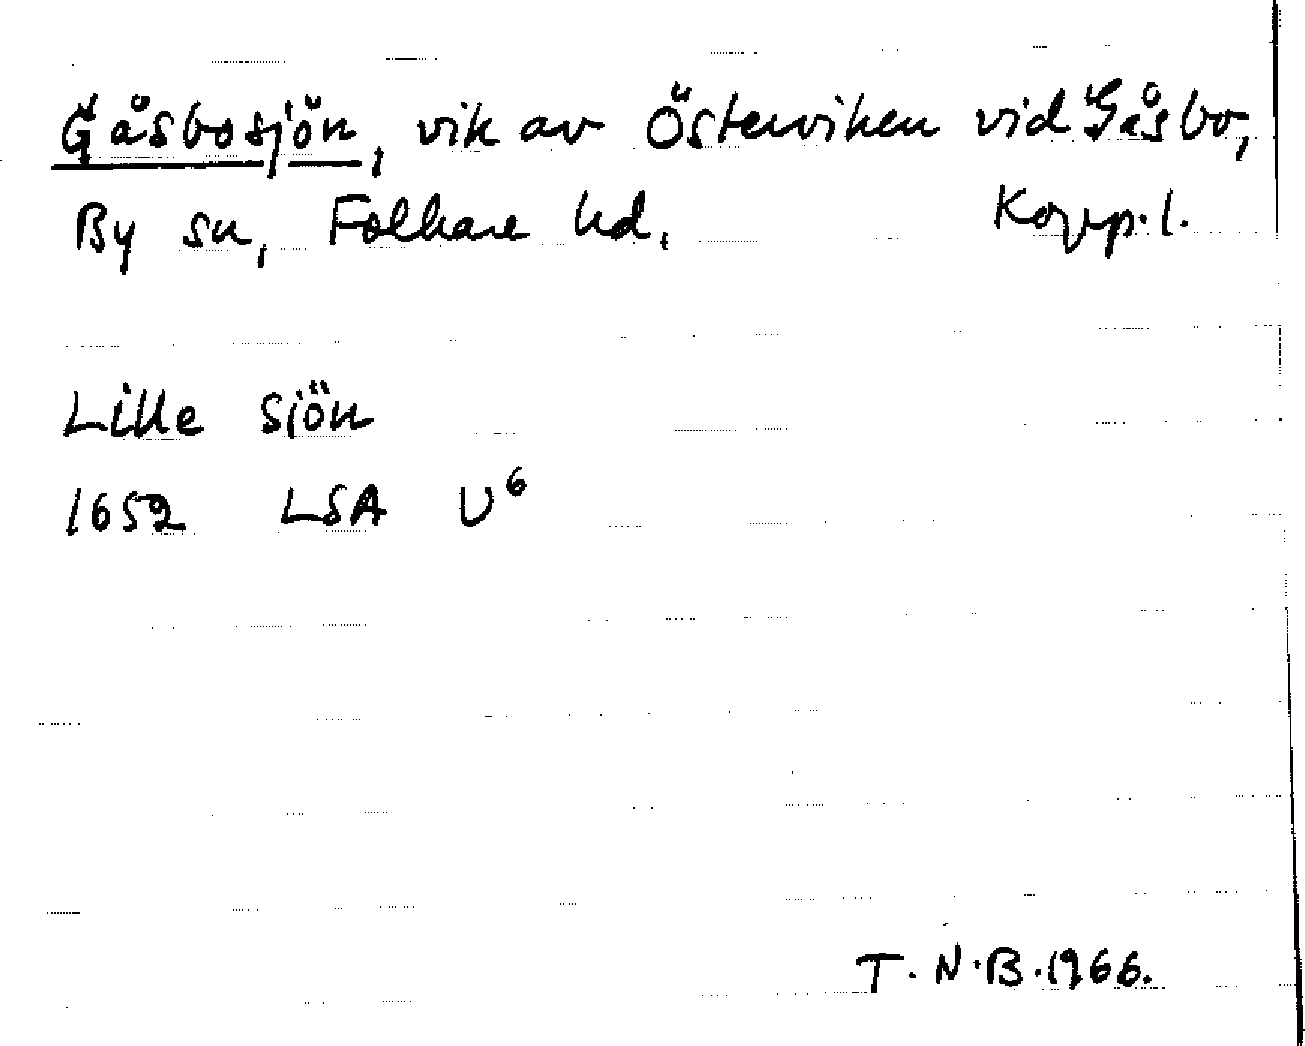 Gåsbosjön, vik av Österviken vid Gåsbo,
By sn, Folkare hd. Kopp. l.
Lille Siön
1652 LSA U⁶
T. N. B. 1966.